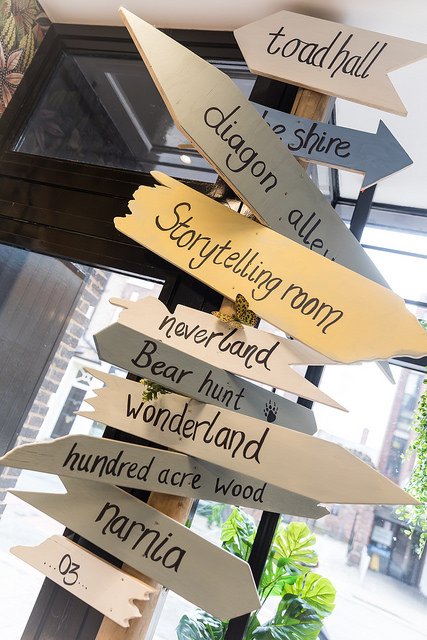 toadhall
he shire
diagon alley
Storytelling room
neverland
Bear hunt
wonderland
hundred acre wood
narnia
...Oz...